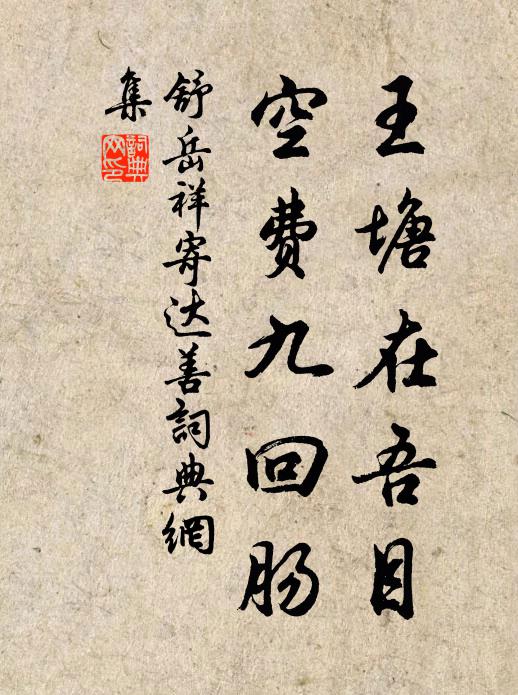 王塘在吾目
空费九回肠
舒岳祥寄达善詞典網
集
詞典網印